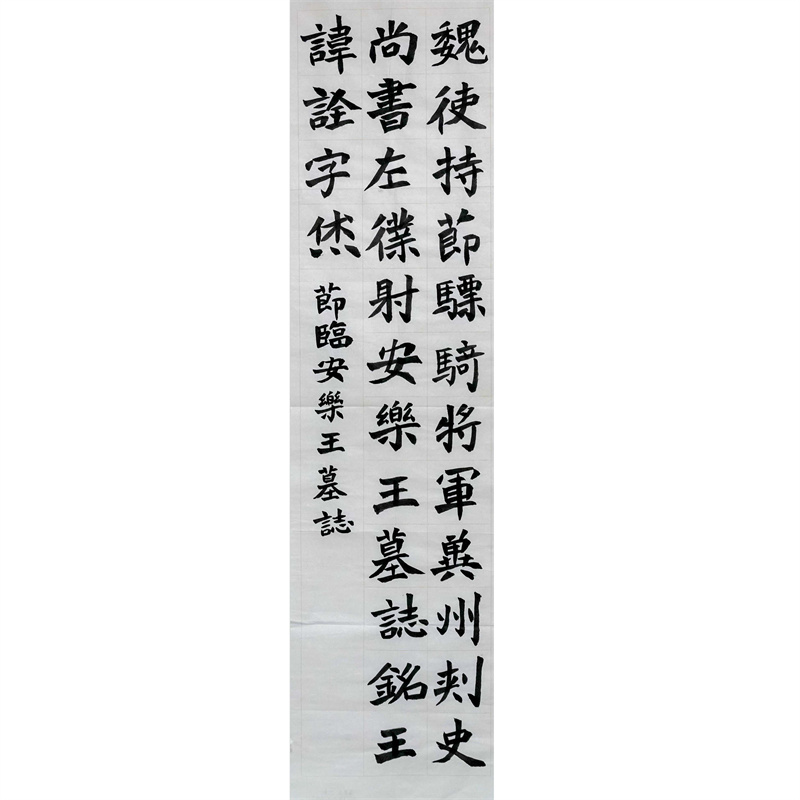 魏使持節驃騎將軍冀州刺史
尚書左僕射安樂王墓誌銘王
諱詮字休
節臨安樂王墓誌